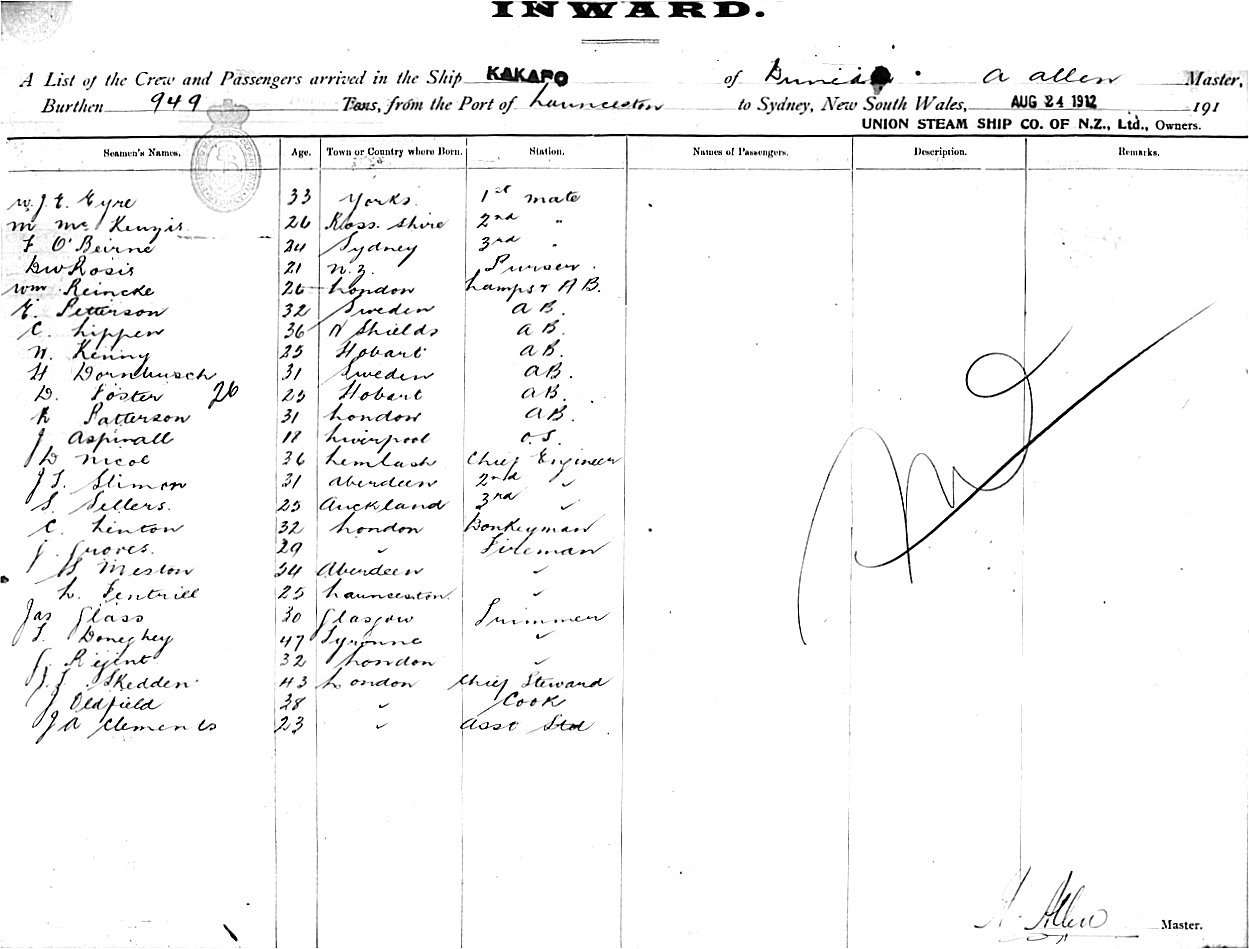 INWARD.
A List of the Crew and Passengers arrived in the Ship KAKAPO of Dunedin. A Allen Master,
Burthen 949 Tons, from the Port of Launceston to Sydney, New South Wales, AUG 24 1912 191
UNION STEAM SHIP CO. OF N.Z., Ltd., Owners.
Seamen's Names. Age. Town or Country where Born. Station. Names of Passengers. Description. Remarks.
W. J. E. Eyre 33 Yorks. 1st Mate
M McKenzis 26 Ross. Shire 2nd "
F O'Beirne 24 Sydney 3rd "
DW Rosis 21 N.Z. Purser.
Wm Reincke 26 London Lamps & A B.
E. Petterson 32 Sweden A B.
C. Lippen 36 N Shields A B.
N. Kenny 25 Hobart A B.
H Dornbusch 31 Sweden AB.
D. Foster 26 25 Hobart AB.
R Patterson 31 London AB.
J Aspinall 18 Liverpool O.S.
D Nicol 36 Chief Engineer
J T. Slimon 31 Aberdeen 2nd "
S. Sellers. 25 Auckland 3rd "
C. Linton 32 London Donkeyman
J. Groves. 29 " Fireman
Meston 34 Aberdeen "
L. Fentrill 25 Launceston. "
Jas Glass 30 Glasgow Trimmer
T. Doneghey 47 Tyronne "
J. Regent 32 London "
J. J. Skedden 43 London Chief Steward
J Oldfield 38 " Cook
J A Clements 23 " Asst Std
26
A. Allen Master.